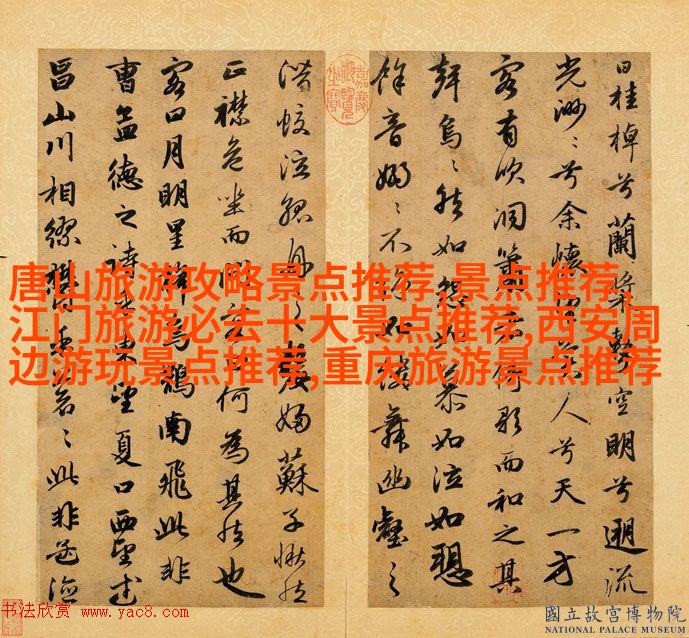 曰桂棹兮蘭槳擊空明兮遡流
光渺〻兮余懷望美人兮天一方
客有吹洞簫者倚歌而和之其
聲烏〻然如怨如慕如泣如愬
餘音嫋〻不絕如縷舞幽壑之
潛蛟泣孤舟之嫠婦蘇子愀然
正襟危坐而問客曰何為其然也
客曰月明星稀烏鵲南飛此非
曹孟德之詩乎東望夏口西望武
昌山川相繆鬱乎蒼〻此非孟德
唐山旅游攻略景点推荐,景点推荐,
江门旅游必去十大景点推荐,西安周
边游玩景点推荐,重庆旅游景点推荐
书法欣赏 www.yac8.com
國立故宮博物院
NATIONAL PALACE MUSEUM